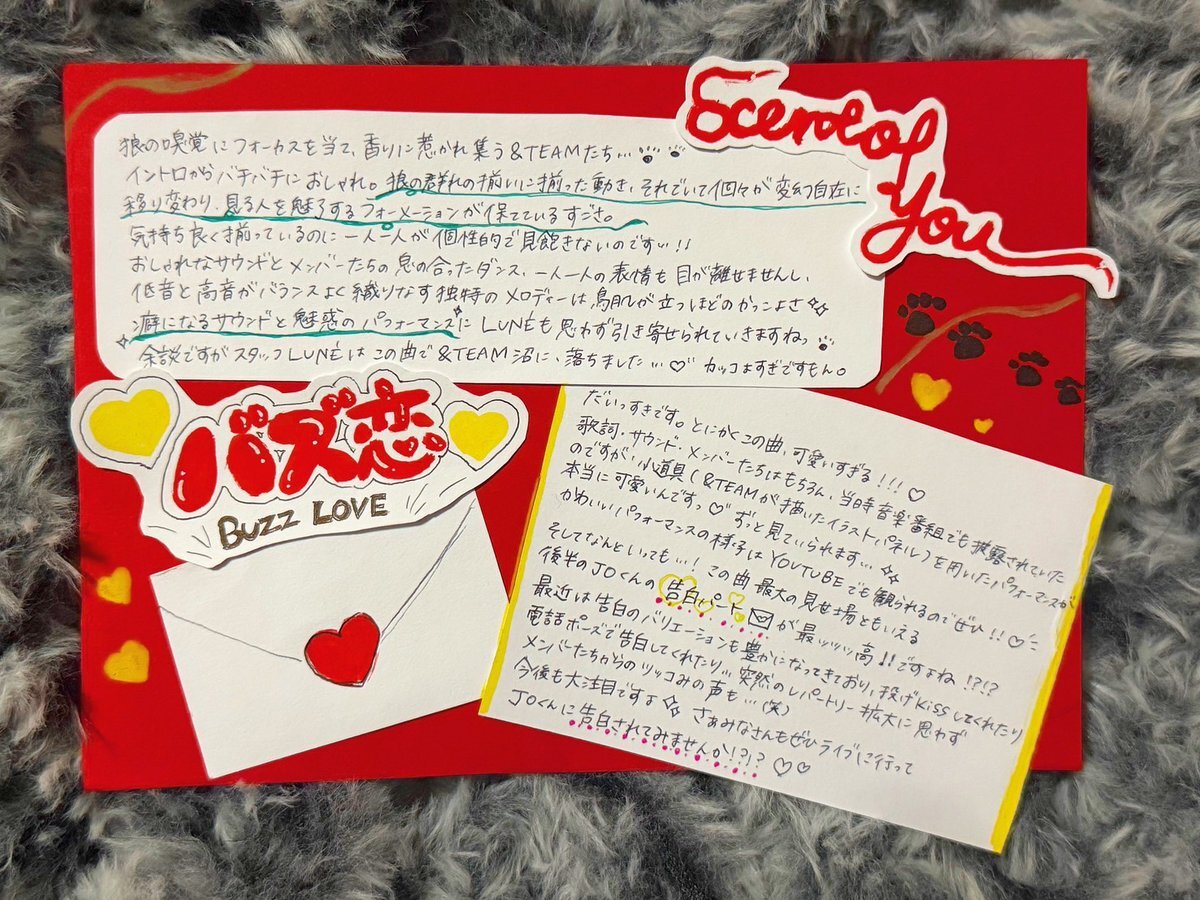 Scent of
You
狼の嗅覚にフォーカスを当て、香りに惹かれ集う&TEAMたち…
イントロからバチバチにおしゃれ。狼の群れの揃いに揃った動き、それでいて個々が変幻自在に
移り変わり、見る人を魅了するフォーメーションが保てているすごさ。
気持ち良く揃っているのに一人一人が個性的で見飽きないのですぃ!!
おしゃれなサウンドとメンバーたちの息の合ったダンス、一人一人の表情も目が離せませんし、
低音と高音がバランスよく織りなす独特のメロディーは鳥肌が立つほどのかっこよさ✨
癖になるサウンドと魅惑のパフォーマンスにLUNÉも思わず引き寄せられていきますねっ
余談ですがスタッフLUNÉはこの曲で&TEAM沼に、落ちました…♡ カッコよすぎですもん。
バズ恋
BUZZ LOVE
だいっすきです。とにかくこの曲、可愛いすぎる!!!♡
歌詞・サウンド・メンバーたちはもちろん、当時音楽番組でも披露されていた
のですが、小道具(&TEAMが描いたイラストパネル)を用いたパフォーマンスが
本当に可愛いんですっ♡ ずっと見ていられます…✨
かわいいパフォーマンスの様子はYOUTUBEでも観られるのでぜひ!!♡
そしてなんといっても…!この曲最大の見せ場ともいえる
後半のJOくんの告白パート💌が最ッッッ高!!ですよね!?!?
最近は告白のバリエーションも豊かになってきており、投げKissしてくれたり
電話ポーズで告白してくれたり…突然のレパートリー拡大に思わず
メンバーたちからのツッコみの声も…(笑)
今後も大注目ですよ✨ さぁみなさんもぜひライブに行って
JOくんに告白されてみませんか!?!? ♡♡